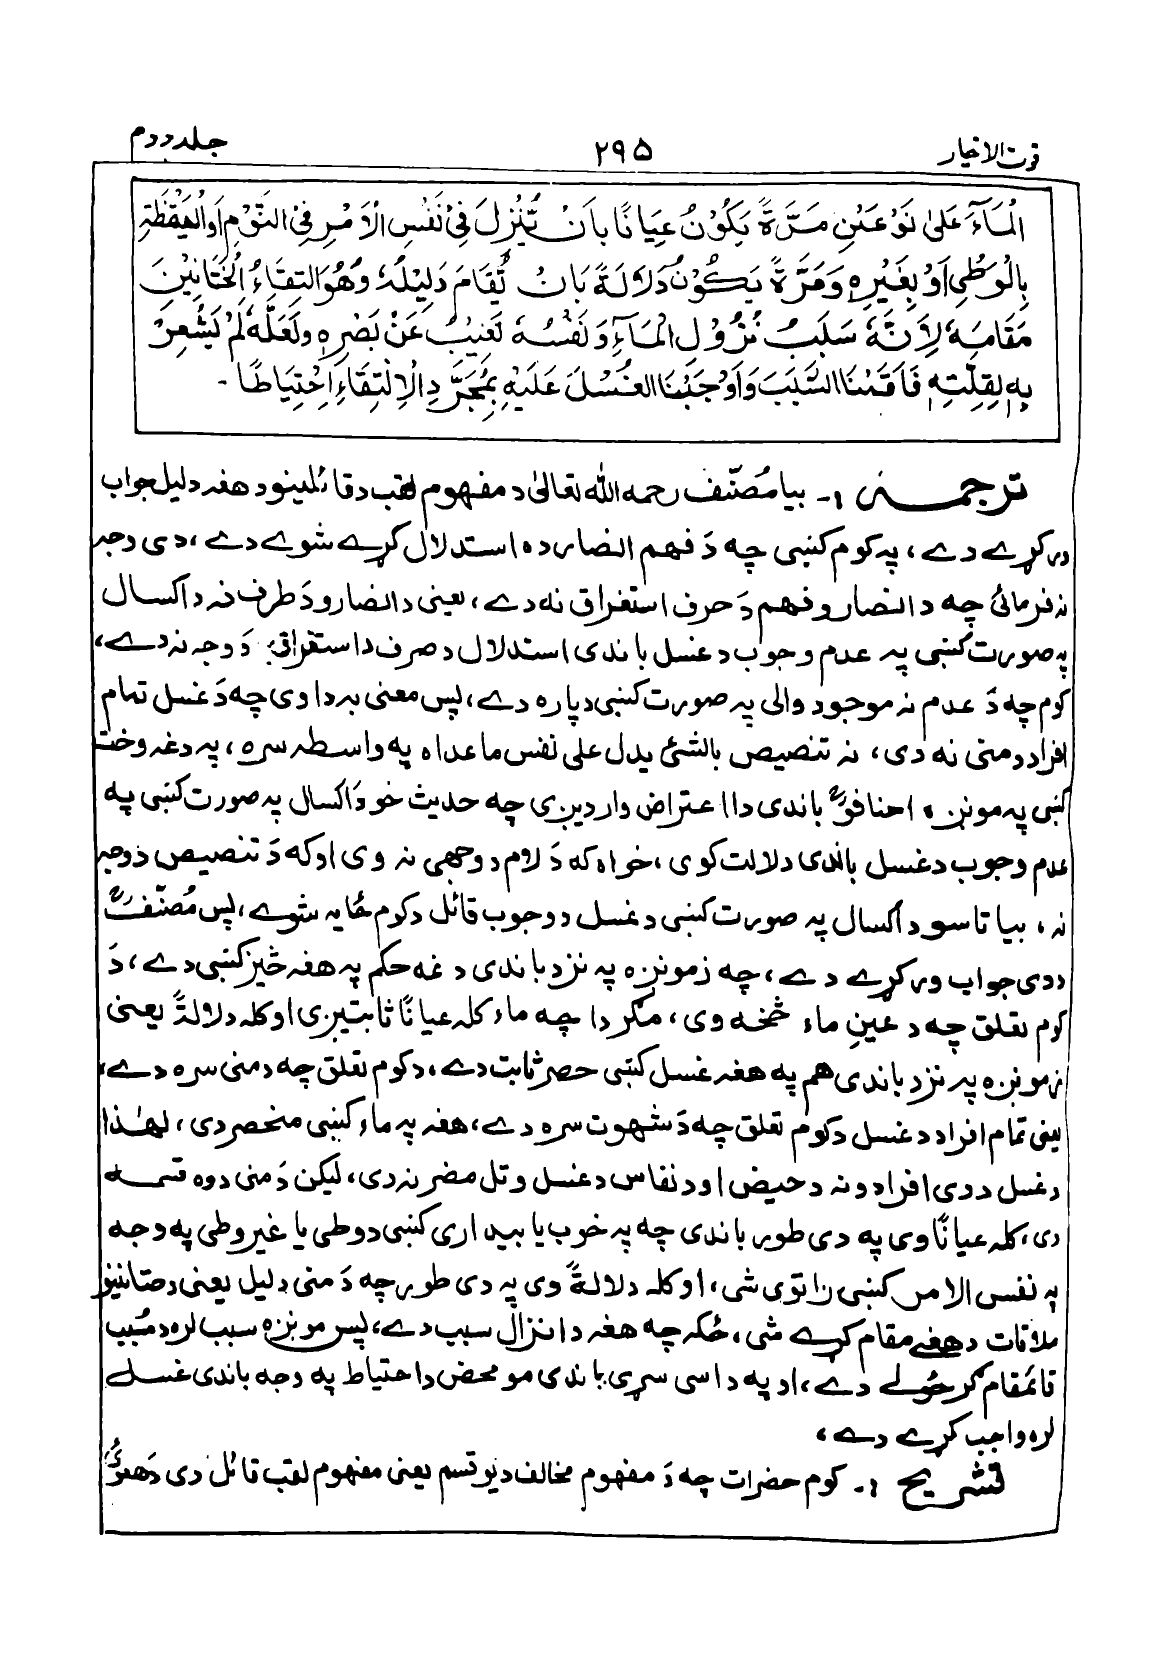 قوت الاخیار ۲۹۵ جلد دوم
الْمَآءَ عَلىٰ نَوْعَيْنِ مَرَّةً يَكُوْنُ عِيَانًا بِاَنْ تُنْزِلَ فِىْ نَفْسِ الْاَمْرِ فِى النَّوْمِ اَوِ الْيَقْظَةِ
بِالْوَطْىِ اَوْ بِغَيْرِهٖ وَمَرَّةً يَكُوْنُ دَلَالَةً بِاَنْ تُقَامَ دَلِيْلُهٗ وَهُوَ الْتِقَاءُ الْخَتَانَيْنِ
مَقَامَهٗ لِاَنَّهٗ سَبَبُ نُزُوْلِ الْمَآءِ وَنَفْسُهٗ تَغِيْبُ عَنْ بَصَرِهٖ وَلَعَلَّهٗ لَمْ يَشْعُرْ
بِهٖ لِقِلَّتِهٖ فَاَقَمْنَا السَّبَبَ وَاَوْجَبْنَا الْغُسْلَ عَلَيْهِ بِمُجَرَّدِ الْاِلْتِقَاءِ اِحْتِيَاطًا -
ترجمہ :- بیا مُصنّف رحمه الله تعالىٰ د مفهوم لقب د قائلینو د هغه دلیل جواب
ورکړے دے، په کوم کښې چه دَ فهم انصار ده استدلال کړے شوے دے، دی وجه
نه فرمائی چه د انصارو فهم دَ حرف استغراق نه دے، یعنی د انصارو دَ طرف نه د اکسال
په صورت کښې په عدم وجوب د غسل باندی استدلال د صرف د استغراق دَ وجه نه دے،
کوم چه دَ عدم نه موجود والی په صورت کښې دپاره دے، پس معنی به دا وی چه دَ غسل تمام
افراد د منی نه دی، نه تنصیص بالشئ یدل علی نفس ماعداه په واسطه سره، په دغه وخت
کښې په مونږه احنافوؒ باندی دا اعتراض واردیږی چه حدیث خو دَ اکسال په صورت کښې په
عدم وجوب د غسل باندی دلالت کوی، خواه که دَ لام د وجهی نه وی او که دَ تنصیص دَ وجه
نه، بیا تاسو د اکسال په صورت کښې د غسل د وجوب قائل د کوم ځایه شوے، پس مُصنّفؒ
ددی جواب ورکړے دے، چه زمونږه په نزد باندی دغه حکم په هغه څیز کښې دے، دَ
کوم تعلق چه د عینِ ماء څخه وی، مگر دا چه ماء کله عیانًا ثابتیږی او کله دلالةً یعنی
زمونږه په نزد باندی هم په هغه غسل کښې حصر ثابت دے، د کوم تعلق چه د منی سره دے،
یعنی تمام افراد د غسل د کوم تعلق چه دَ شهوت سره دے، هغه په ماء کښې منحصر دی، لهٰذا
د غسل ددی افرادو نه د حیض او د نفاس د غسل وتل مضر نه دی، لیکن دَ منی دوه قسمه
دی، کله عیانًا وی په دی طور باندی چه په خوب یا بیداری کښې د وطی یا غیر وطی په وجه
په نفس الامر کښې راتوی شی، او کله دلالةً وی په دی طور چه دَ منی دلیل یعنی د ختانینو
ملاقات د هغے مقام کړے شی، ځکه چه هغه د انزال سبب دے، پس مونږه سبب لره د مُسبب
قائمقام ګرځولے دے، او په داسی سړی باندی مو محض د احتیاط په وجه باندی غسلے
لره واجب کړے دے،
تشریح :- کوم حضرات چه دَ مفهوم مخالف د یو قسم یعنی مفهوم لقب قائل دی دَ هغوئ